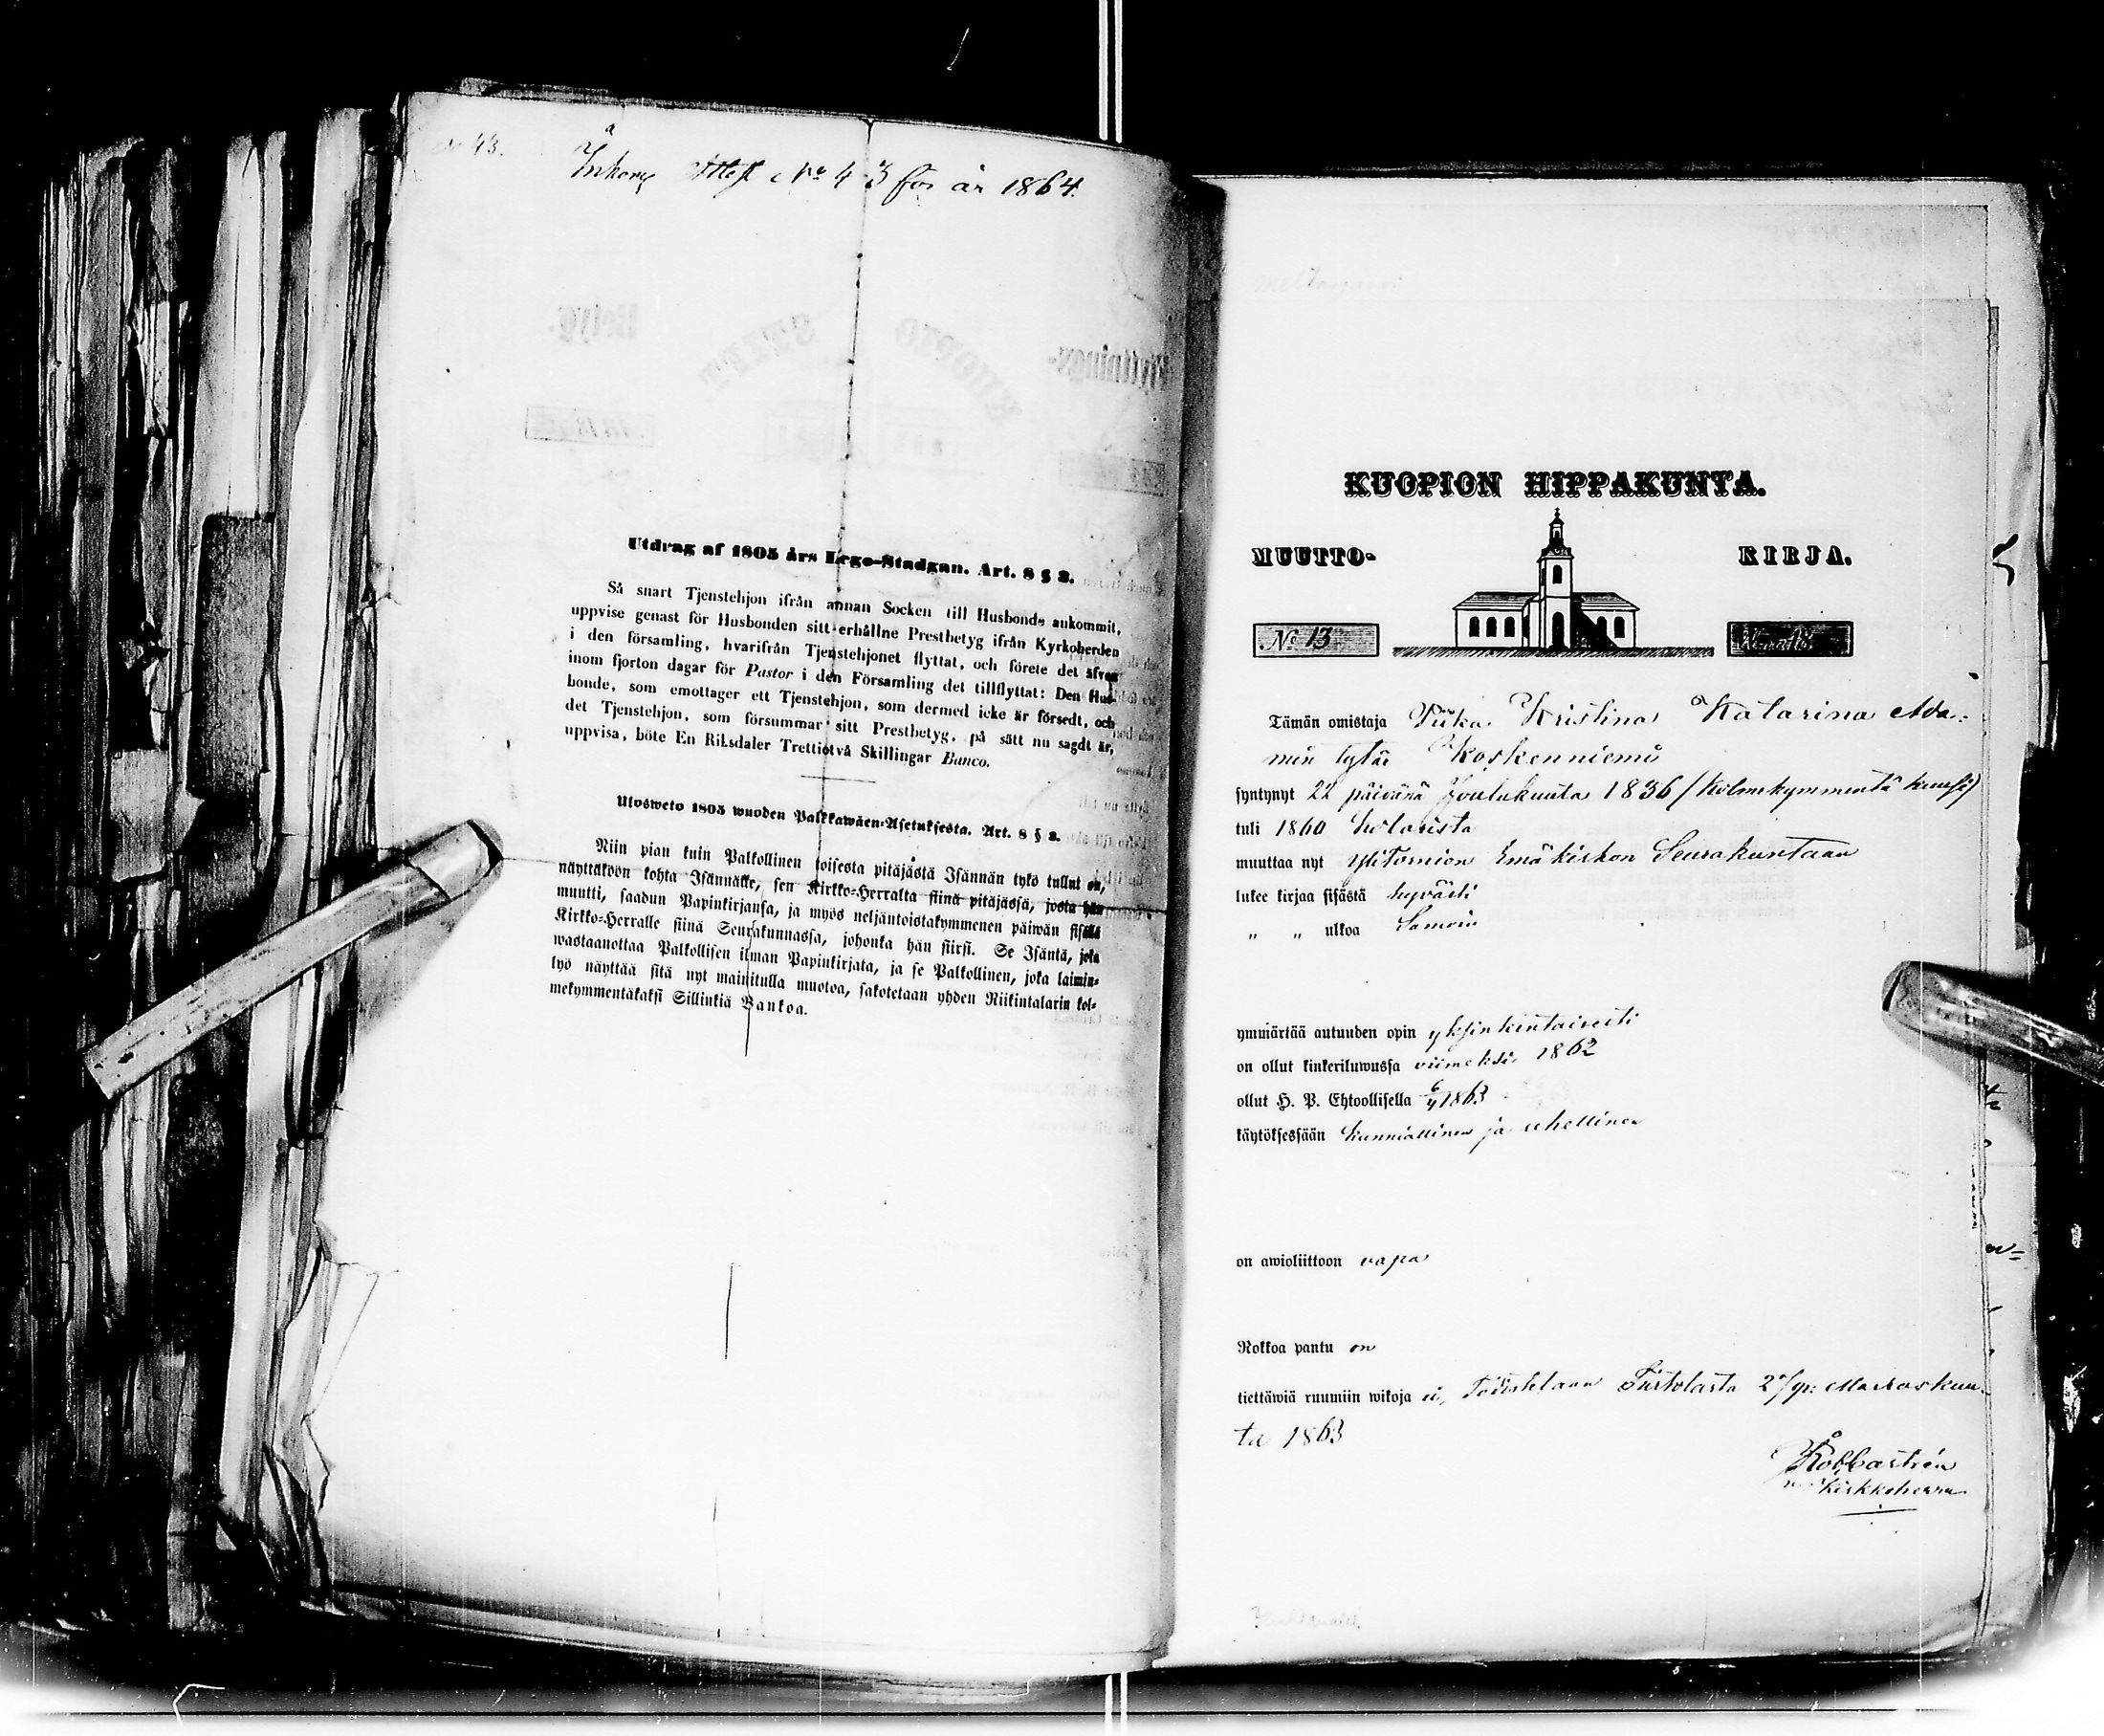 No 43.
Inkom Attest No 43 för år 1864.
Utdrag af 1805 års Lego-Stadgan. Art. 8 § 2.
Så snart Tjenstehjon ifrån annan Socken till Husbonde ankommit,
uppvise genast för Husbonden sitt erhållne Prestbetyg ifrån Kyrkoherden
i den församling, hvarifrån Tjenstehjonet flyttat, och förete det äfven
inom fjorton dagar för Pastor i den Församling det tillflyttat: Den Hus-
bonde, som emottager ett Tjenstehjon, som dermed icke är försedt, och
det Tjenstehjon, som försummar sitt Prestbetyg, på sätt nu sagdt är,
uppvisa, böte En Riksdaler Trettiotvå Skillingar Banco.
Ulosweto 1805 wuoden Palkkawäen-Asetuksesta. Art. 8 § 2.
Niin pian kuin Palkollinen toisesta pitäjästä Isännän tykö tullut on,
näyttäköön kohta Isännälle, sen Kirkko-Herralta siinä pitäjässä, josta hän
muutti, saadun Papinkirjansa, ja myös neljäntoistakymmenen päiwän sisällä
Kirkko-Herralle siinä Seurakunnassa, johonka hän siirsi. Se Isäntä, joka
wastaanottaa Palkollisen ilman Papinkirjata, ja se Palkollinen, joka laimin-
lyö näyttää sitä nyt mainitulla muotoa, sakotetaan yhden Riikintalarin kol-
mekymmentäkaksi Sillinkiä Bankoa.
KUOPION HIPPAKUNTA.
MUUTTO- KIRJA.
No 13
Tämän omistaja Piika Kristina Katarina Ada-
min tytär Koskenniemi
syntynyt 22 päivänä Joulukuuta 1836 (Kolmekymmentä kuusi)
tuli 1860 Kolarista
muuttaa nyt Ylitornion Emäkirkon Seurakuntaan
lukee kirjaa sisästä hyvästi
„ „ ulkoa Samoin
ymmärtää autuuden opin yksinkertaisesti
on ollut kinkeriluwussa viimeksi 1862
ollut H. P. Ehtoollisella 6/4 1863
käytöksessään kunniallinen ja rehellinen
on awioliittoon vapa
Rokkoa pantu on
tiettäwiä ruumiin wikoja ei, Todistetaan Turtolasta 2 p: Marraskuu-
ta 1863
v. Kirkkoherra